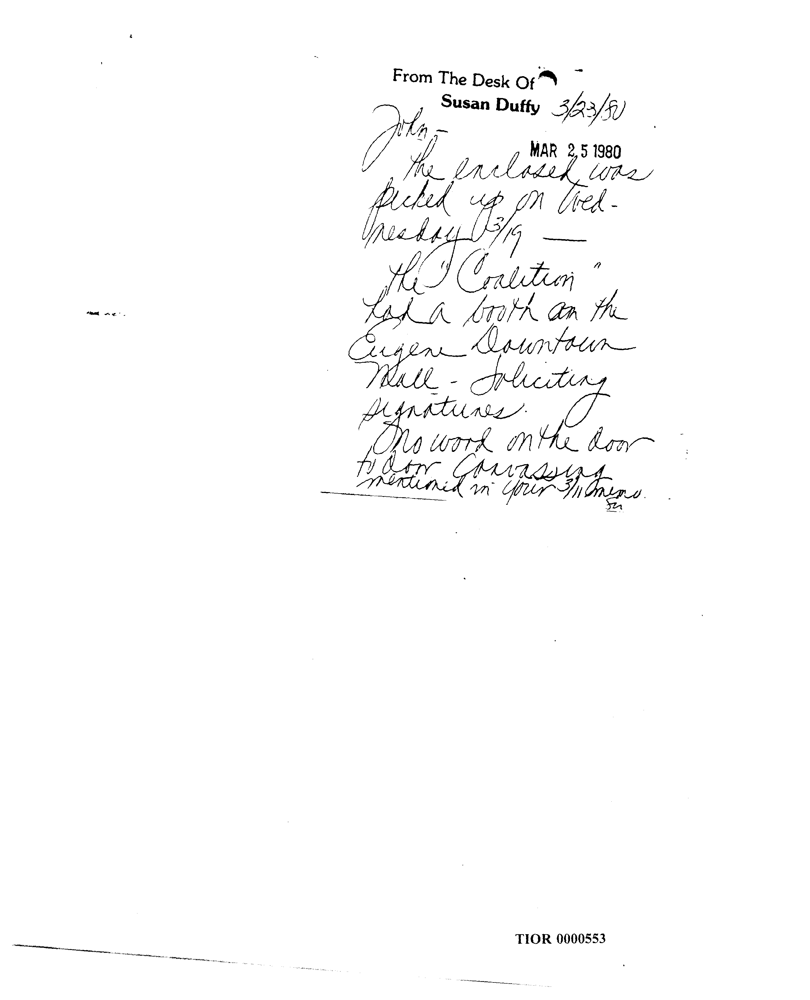 From The Desk Of
Susan Duffy 3/23/80
John –
MAR 25 1980
The enclosed was
picked up on Wed-
nesday 3/19 —
The "Coalition"
had a booth on the
Eugene Downtown
Mall - Soliciting
signatures.
No word on the door
to door Canvassing
mentioned in your 3/11 memo.
TIOR 0000553